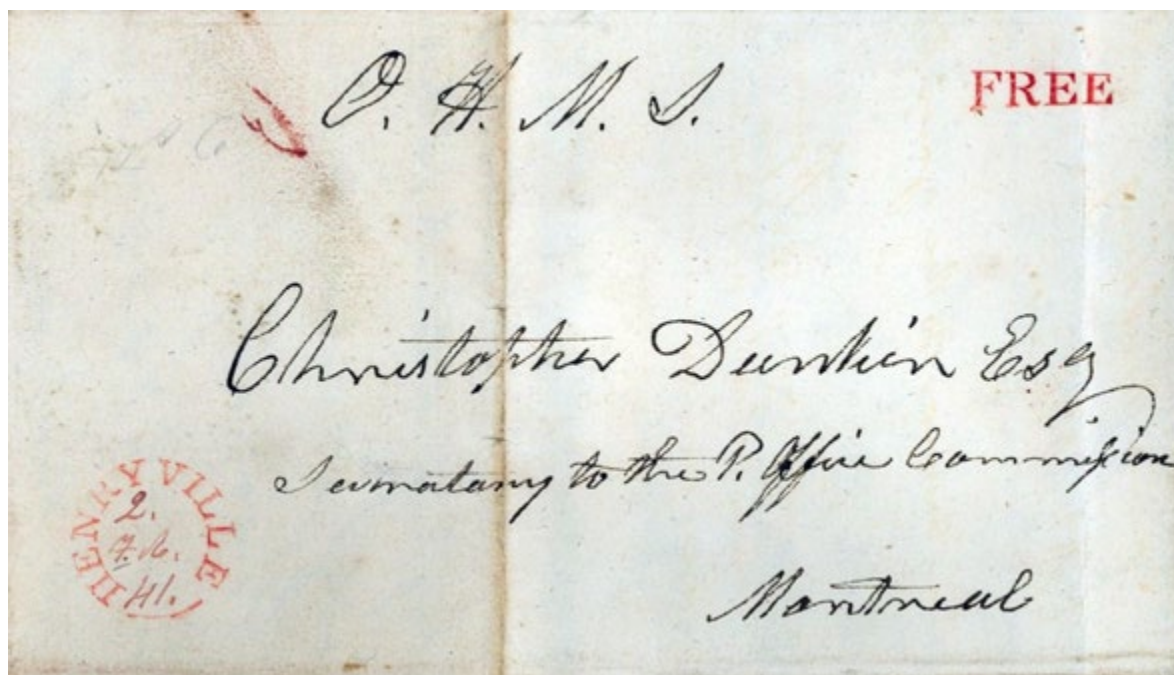 O. H. M. S.
FREE
Christopher Dunkin Esq
Secretary to the P. Office Commission
Montreal
HENRYVILLE
2.
41.